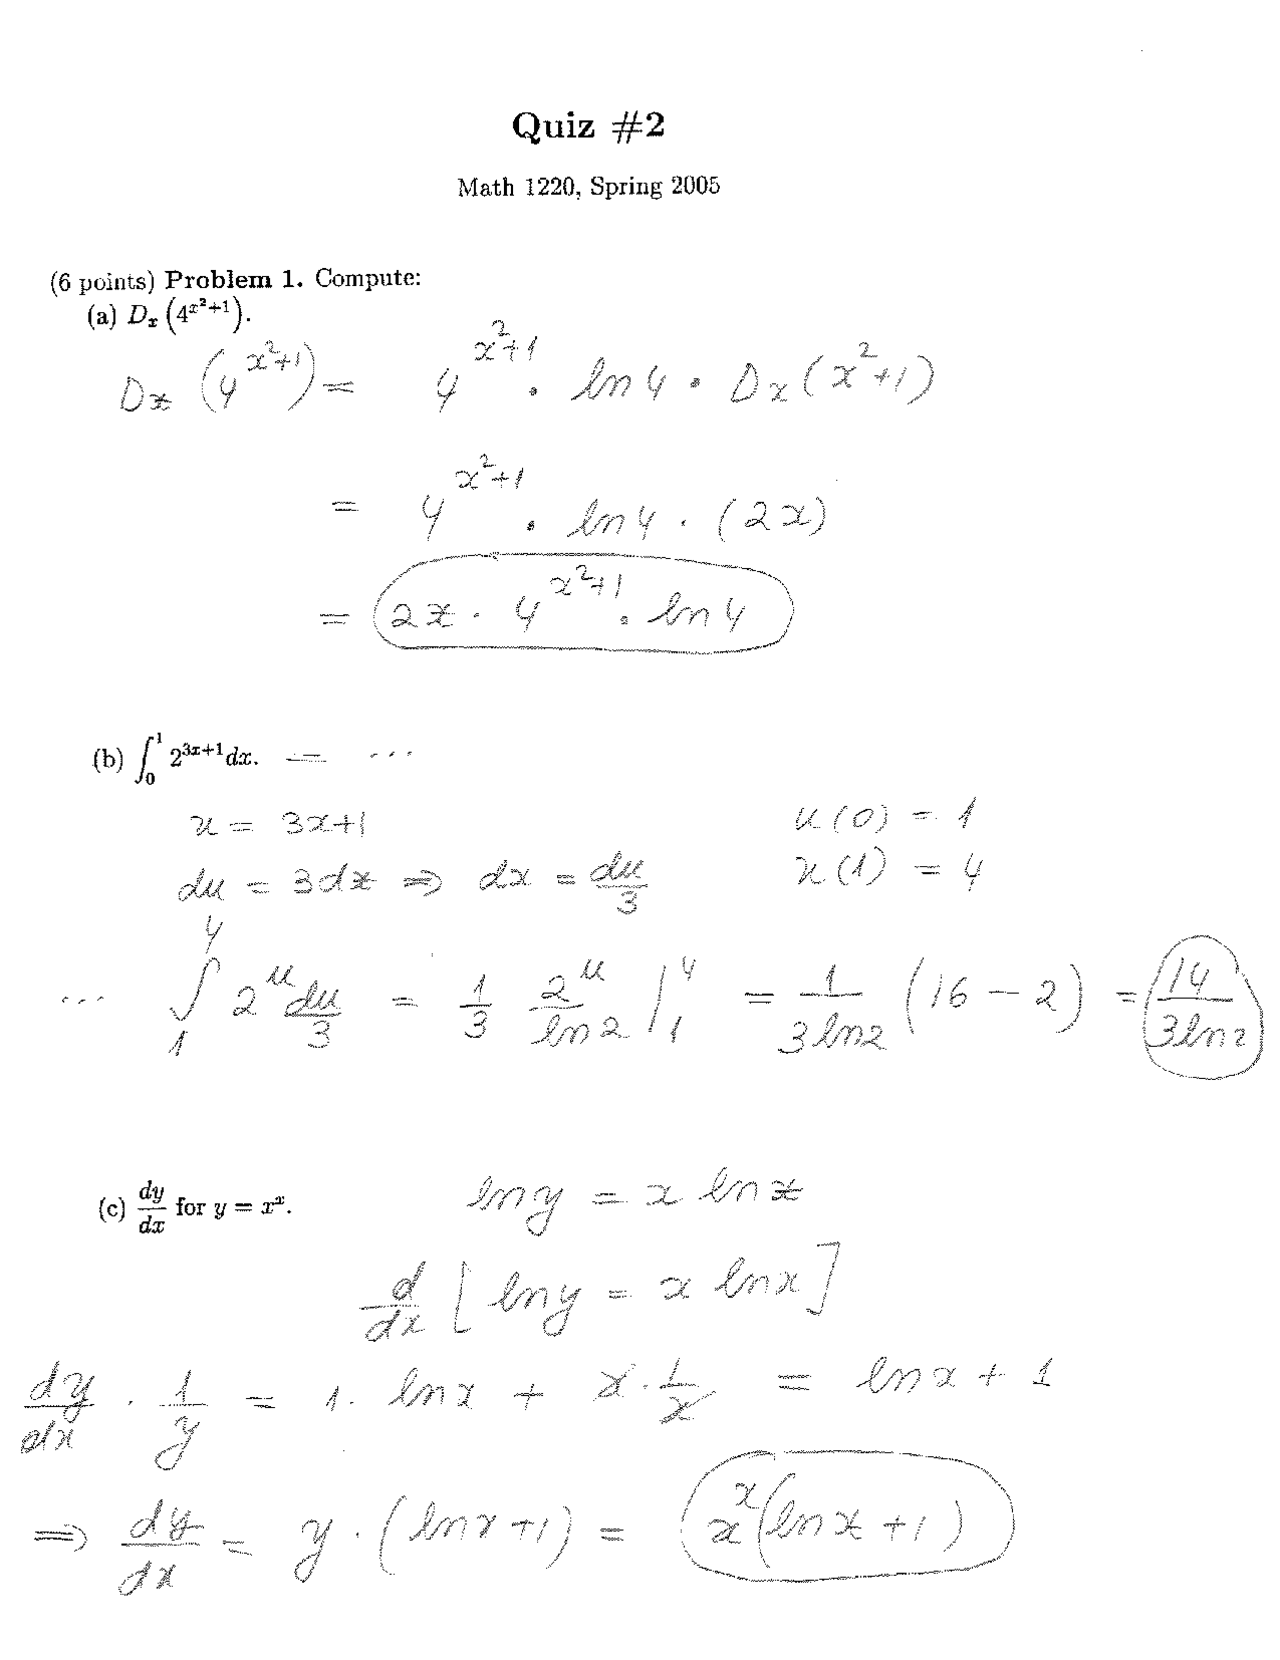 Quiz #2
Math 1220, Spring 2005
(6 points) Problem 1. Compute:
(a) Dₓ (4^{x²+1}).
Dx (4^{x²+1}) = 4^{x²+1} · ln 4 · Dx (x²+1)
= 4^{x²+1} · ln 4 · (2x)
= 2x · 4^{x²+1} · ln 4
(b) ∫₀¹ 2^{3x+1} dx. = ...
u = 3x+1 u(0) = 1
du = 3dx ⇒ dx = du/3 u(1) = 4
... ∫₁⁴ 2^u du/3 = 1/3 2^u/ln 2 |₁⁴ = 1/(3 ln 2) (16 − 2) = 14/(3 ln 2)
(c) dy/dx for y = x^x. ln y = x ln x
d/dx [ ln y = x ln x ]
dy/dx · 1/y = 1 · ln x + x · 1/x = ln x + 1
⇒ dy/dx = y · (ln x + 1) = x^x (ln x + 1)